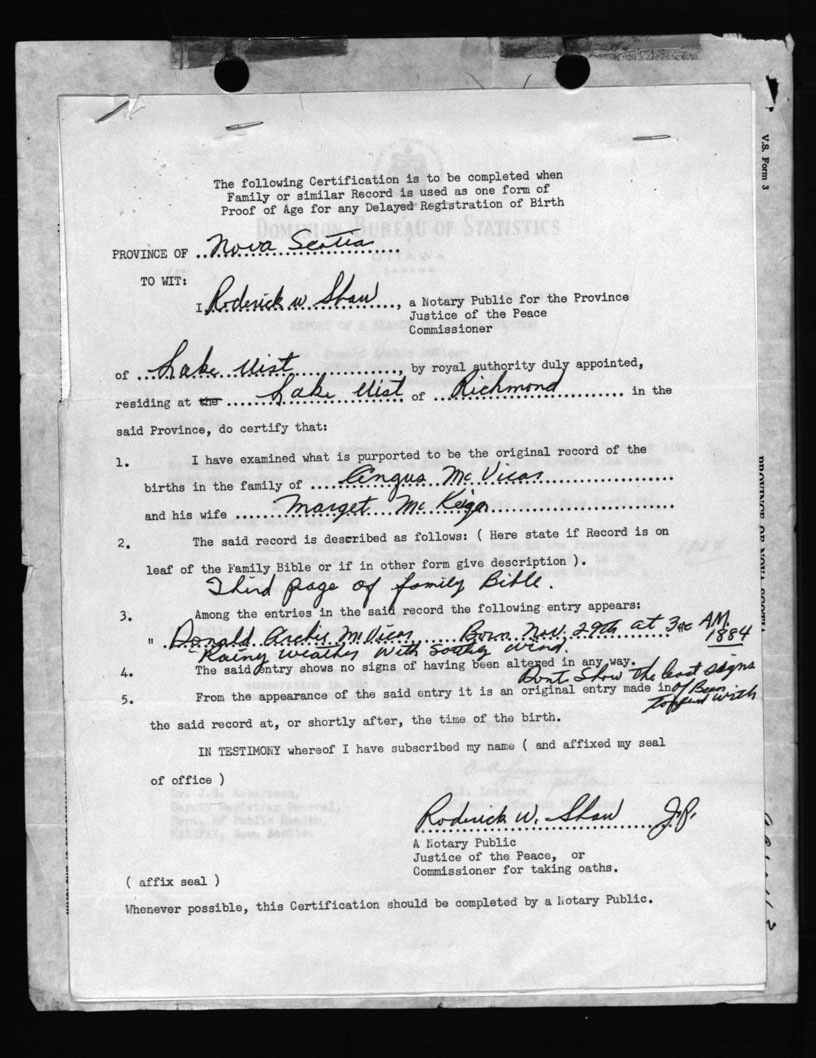 V.S. Form 3
The following Certification is to be completed when
Family or similar Record is used as one form of
Proof of Age for any Delayed Registration of Birth
DOMINION BUREAU OF STATISTICS
OTTAWA
CANADA
PROVINCE OF ..Nova Scotia...
TO WIT:
I Roderick W Shaw..., a Notary Public for the Province
Justice of the Peace
Commissioner
of ...Lake Uist..............., by royal authority duly appointed,
residing at the ....Lake Uist.... of ..Richmond......... in the
said Province, do certify that:
1. I have examined what is purported to be the original record of the
births in the family of ......Angus McVicar....................
and his wife ........Marget McKeigan........................
2. The said record is described as follows: ( Here state if Record is on
leaf of the Family Bible or if in other form give description ).
Third page of family Bible.
3. Among the entries in the said record the following entry appears:
" .Donald Archie McVicar.....Born Nov. 29th at 3 AM 1884
Rainy weather with Southy Wind.
4. The said entry shows no signs of having been altered in any way.
Dont Show the least signs
of Been
with
5. From the appearance of the said entry it is an original entry made in
the said record at, or shortly after, the time of the birth.
IN TESTIMONY whereof I have subscribed my name ( and affixed my seal
of office )
Roderick W. Shaw J.P.
A Notary Public
Justice of the Peace, or
Commissioner for taking oaths.
( affix seal )
Whenever possible, this Certification should be completed by a Notary Public.